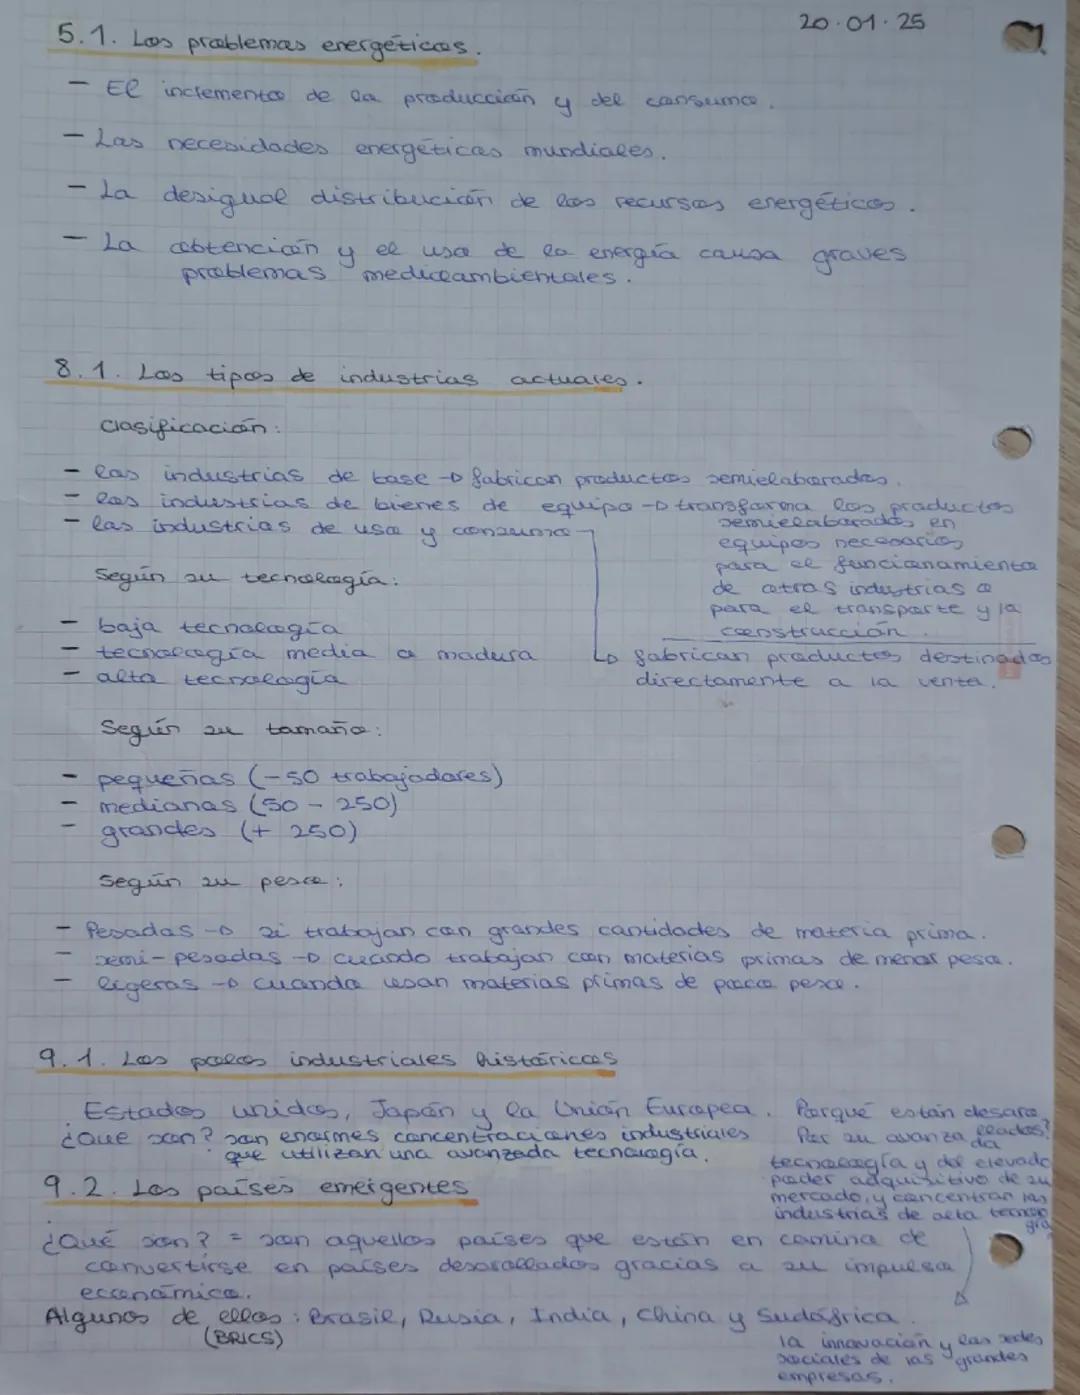 20·01·25
5.1. Los problemas energéticos.
- El incremento de la producción y del consumo.
- Las necesidades energéticas mundiales.
- La desigual distribución de los recursos energéticos.
- La obtención y el uso de la energía causa graves
problemas medioambientales.
8.1. Los tipos de industrias actuales.
Clasificación:
- las industrias de base → fabrican productos semielaborados.
- las industrias de bienes de equipo → transforma los productos
semielaborados en
equipos necesarios
para el funcionamiento
de otras industrias o
para el transporte y la
construcción.
- las industrias de uso y consumo
→ fabrican productos destinados
directamente a la venta.
Según su tecnología:
- baja tecnología
- tecnología media o madura
- alta tecnología
Según su tamaño:
- pequeñas (-50 trabajadores)
- medianas (50 - 250)
- grandes (+ 250)
Según su peso:
- Pesadas → si trabajan con grandes cantidades de materia prima.
- semi-pesadas → cuando trabajan con materias primas de menor peso.
- ligeras → cuando usan materias primas de poco peso.
9.1. Los polos industriales históricos
Estados unidos, Japón y la Unión Europea.
¿Que son? son enormes concentraciones industriales
que utilizan una avanzada tecnología.
Porqué están desaro
llados?
Por su avanza
da
tecnología y del elevado
poder adquisitivo de su
mercado, y concentran las
industrias de alta tecnolo
gía
→ la innovación y las sedes
sociales de las grandes
empresas.
9.2. Los países emergentes
¿Qué son? = son aquellos países que están en camino de
convertirse en países desarollados gracias a su impulso
económico.
Algunos de ellos: Brasil, Rusia, India, China y Sudáfrica.
(BRICS)